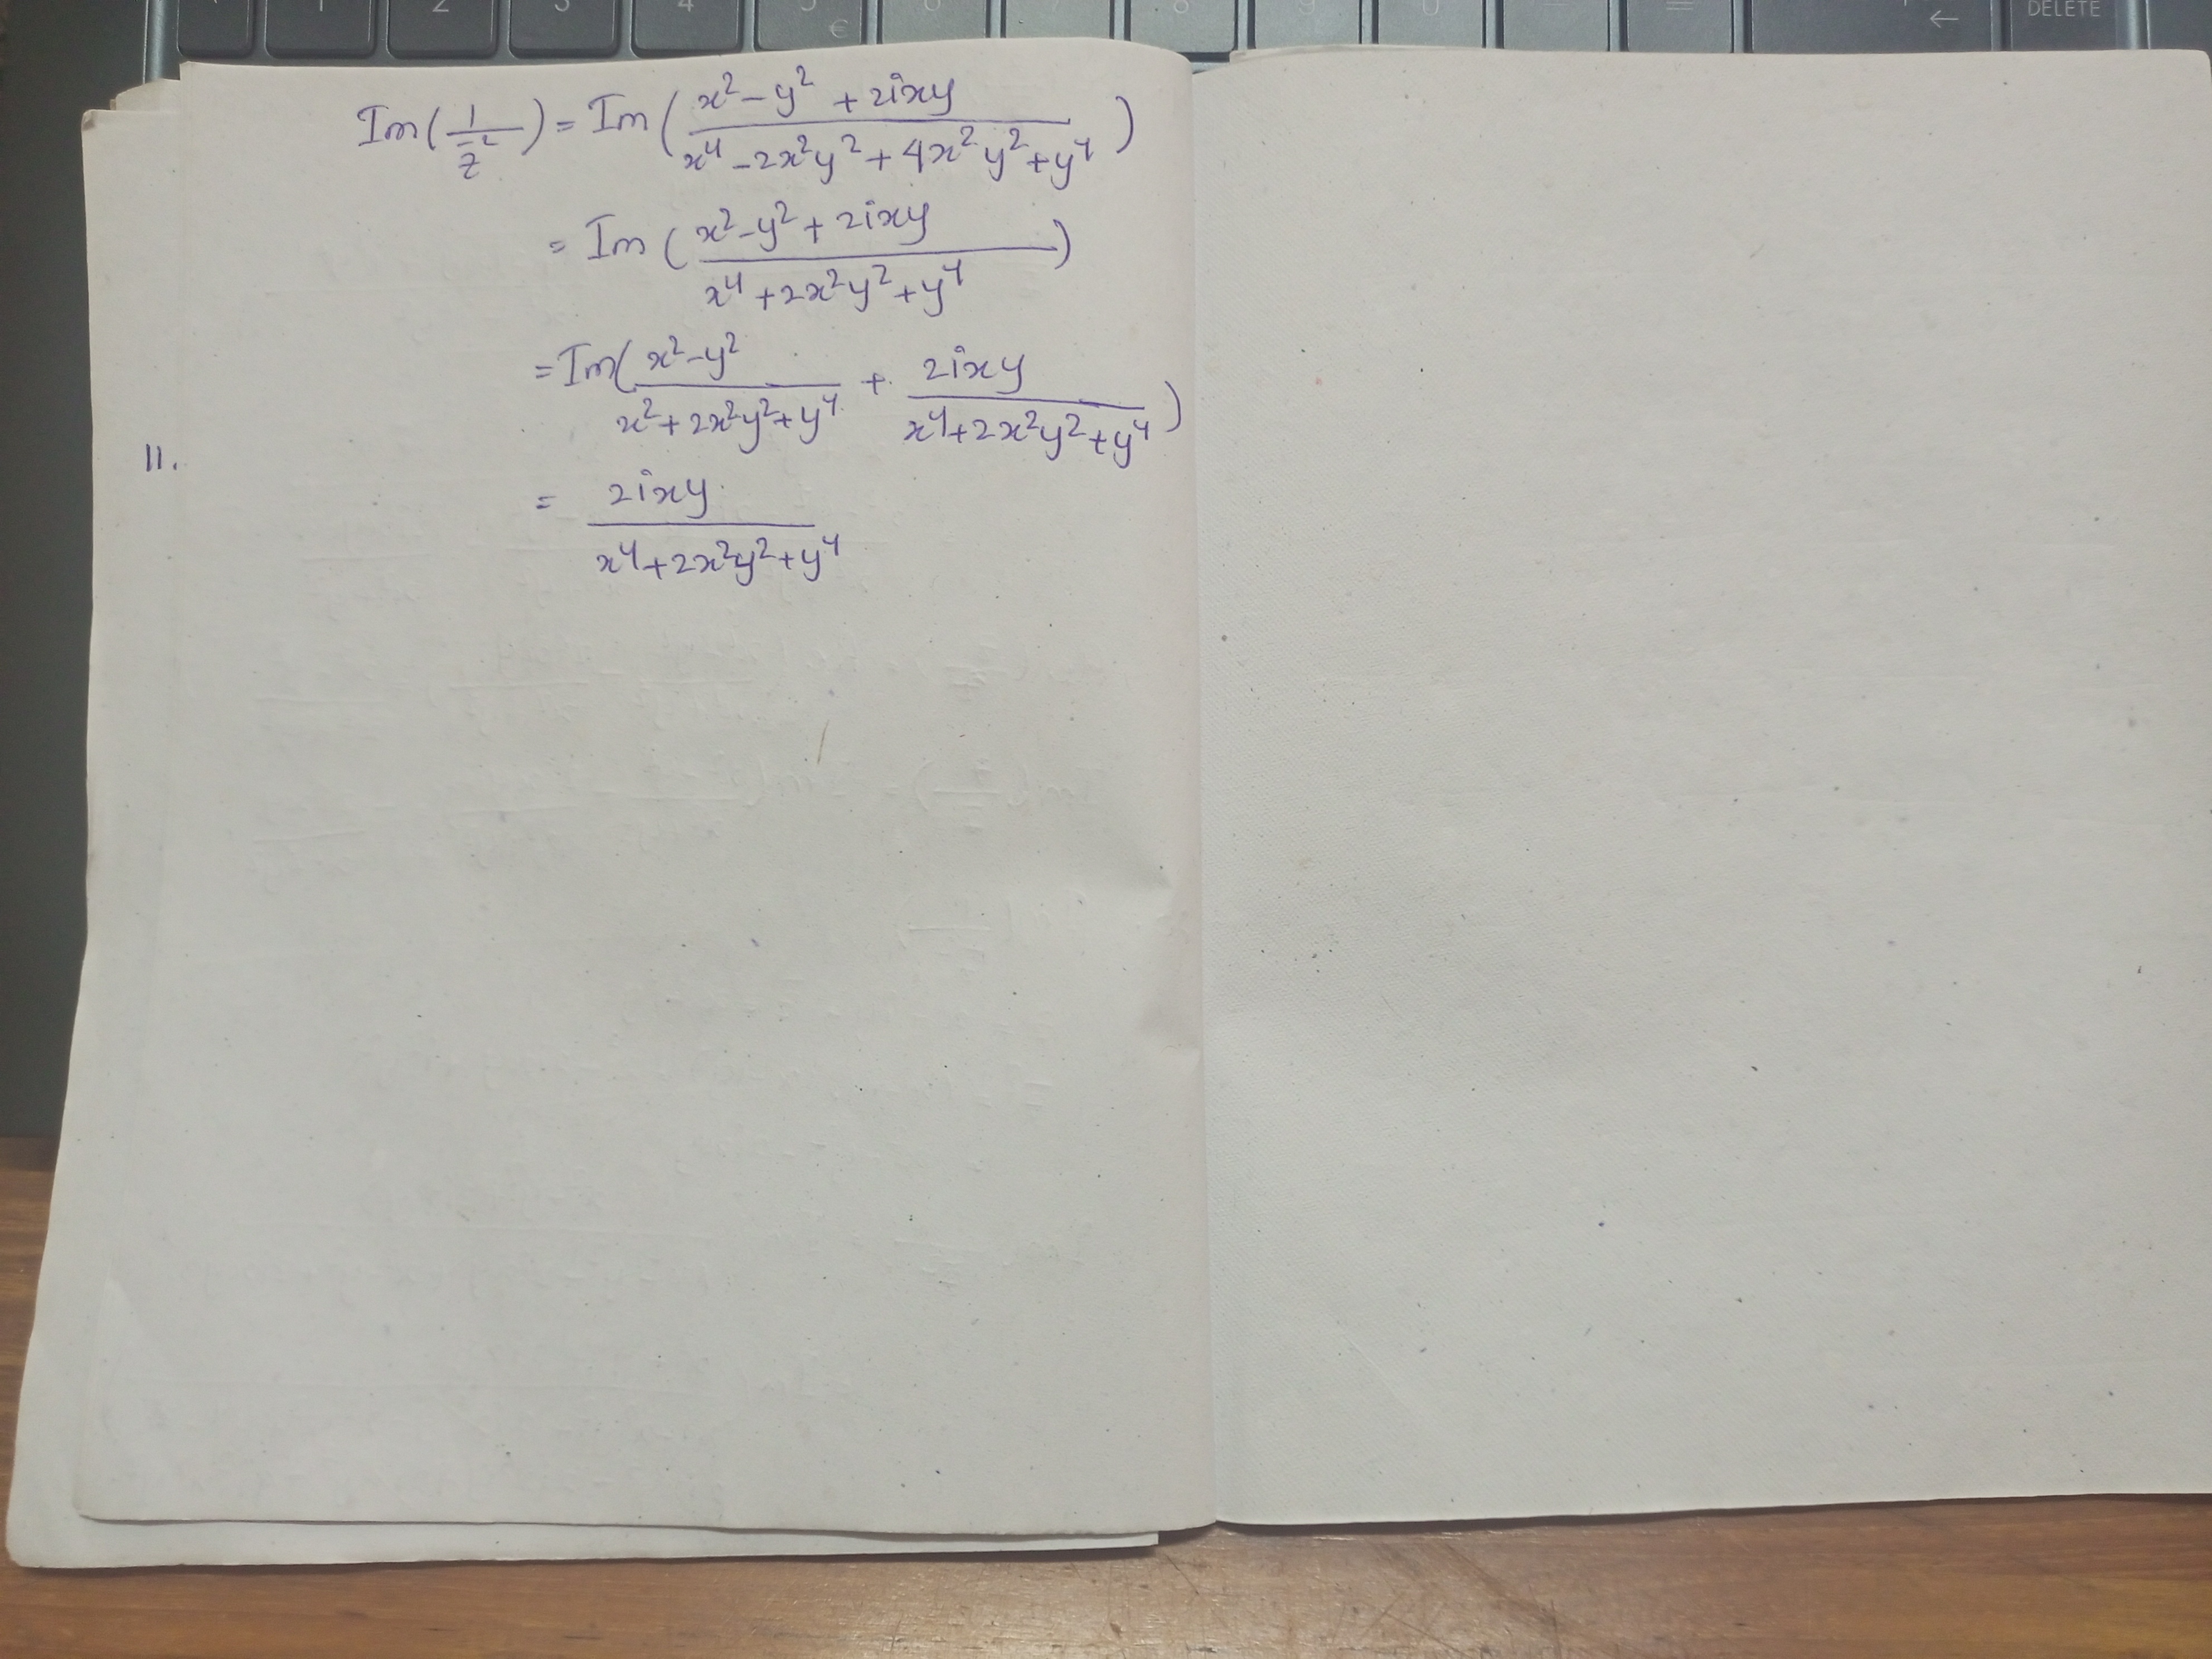 DELETE
Im(1/z̄²) = Im(x²-y²+2ixy / x⁴-2x²y²+4x²y²+y⁴)
= Im(x²-y²+2ixy / x⁴+2x²y²+y⁴)
= Im(x²-y² / x²+2x²y²+y⁴ + 2ixy / x⁴+2x²y²+y⁴)
11.
= 2ixy / x⁴+2x²y²+y⁴